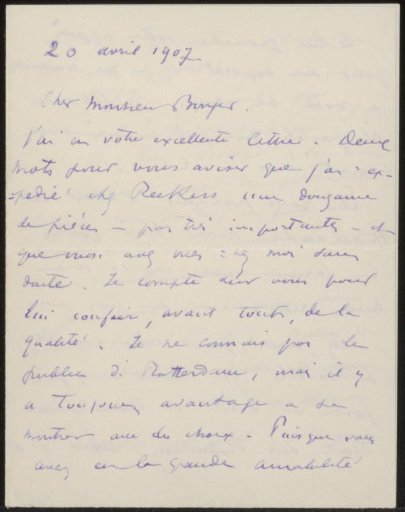 20 avril 1907
Cher Monsieur Burger.
J'ai eu votre excellente lettre. Deux
mots pour vous aviser que j'ai ex-
pédié chez Reckers une douzaine
de pièces – pas très importantes – et
que vous avez vues chez moi sans
doute. Je compte sur vous pour
lui confier, avant tout, de la
qualité. Je ne connais pas le
public de Rotterdam, mais il y
a toujours avantage a se
montrer avec du choix. Puisque vous
avez eu la grande amabilité